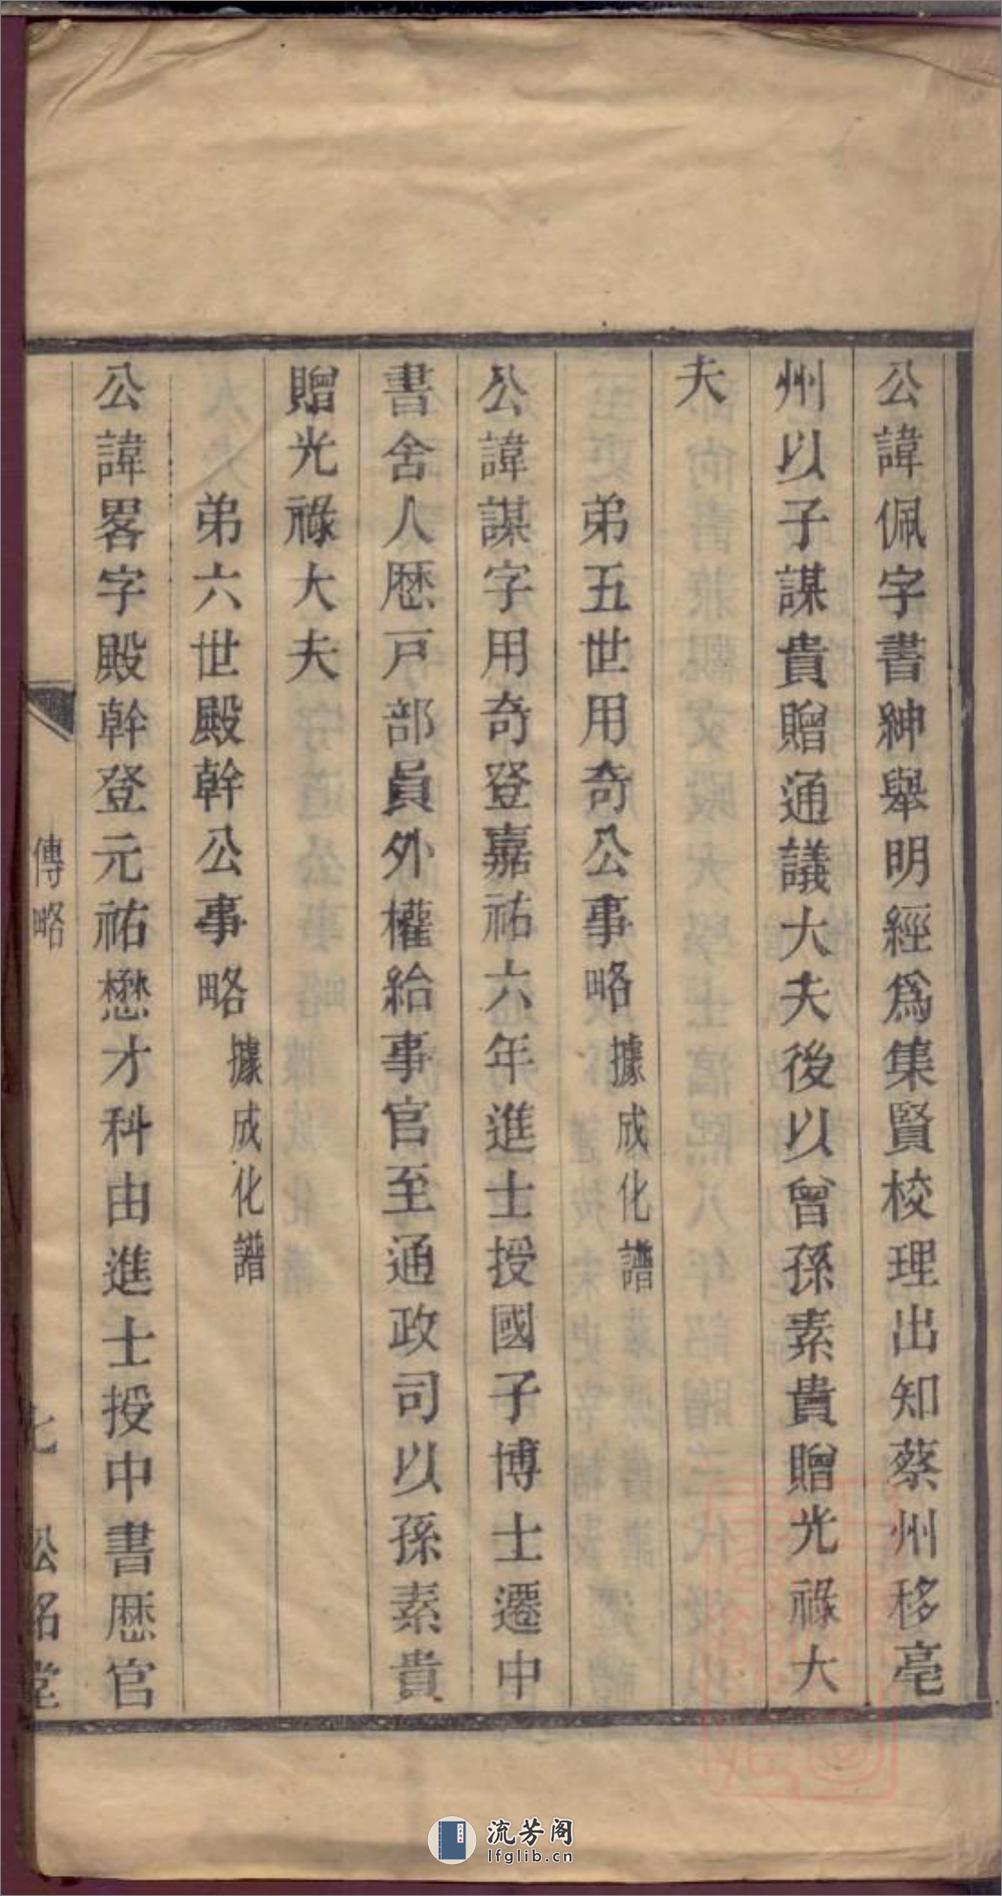 公諱佩字書紳舉明經爲集賢校理出知蔡州移亳
州以子謀貴贈通議大夫後以曾孫素貴贈光祿大
夫
弟五世用奇公事略據成化譜
公諱謀字用奇登嘉祐六年進士授國子博士遷中
書舍人歴戸部員外權給事官至通政司以孫素貴
贈光祿大夫
弟六世殿幹公事略據成化譜
公諱畧字殿幹登元祐懋才科由進士授中書歴官
傳略
七
松銘堂
流芳阁
lfglib.cn